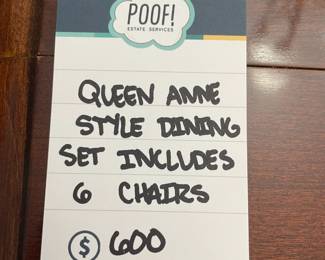 POOF!
ESTATE SERVICES
QUEEN ANNE
STYLE DINING
SET INCLUDES
6 CHAIRS
$ 600